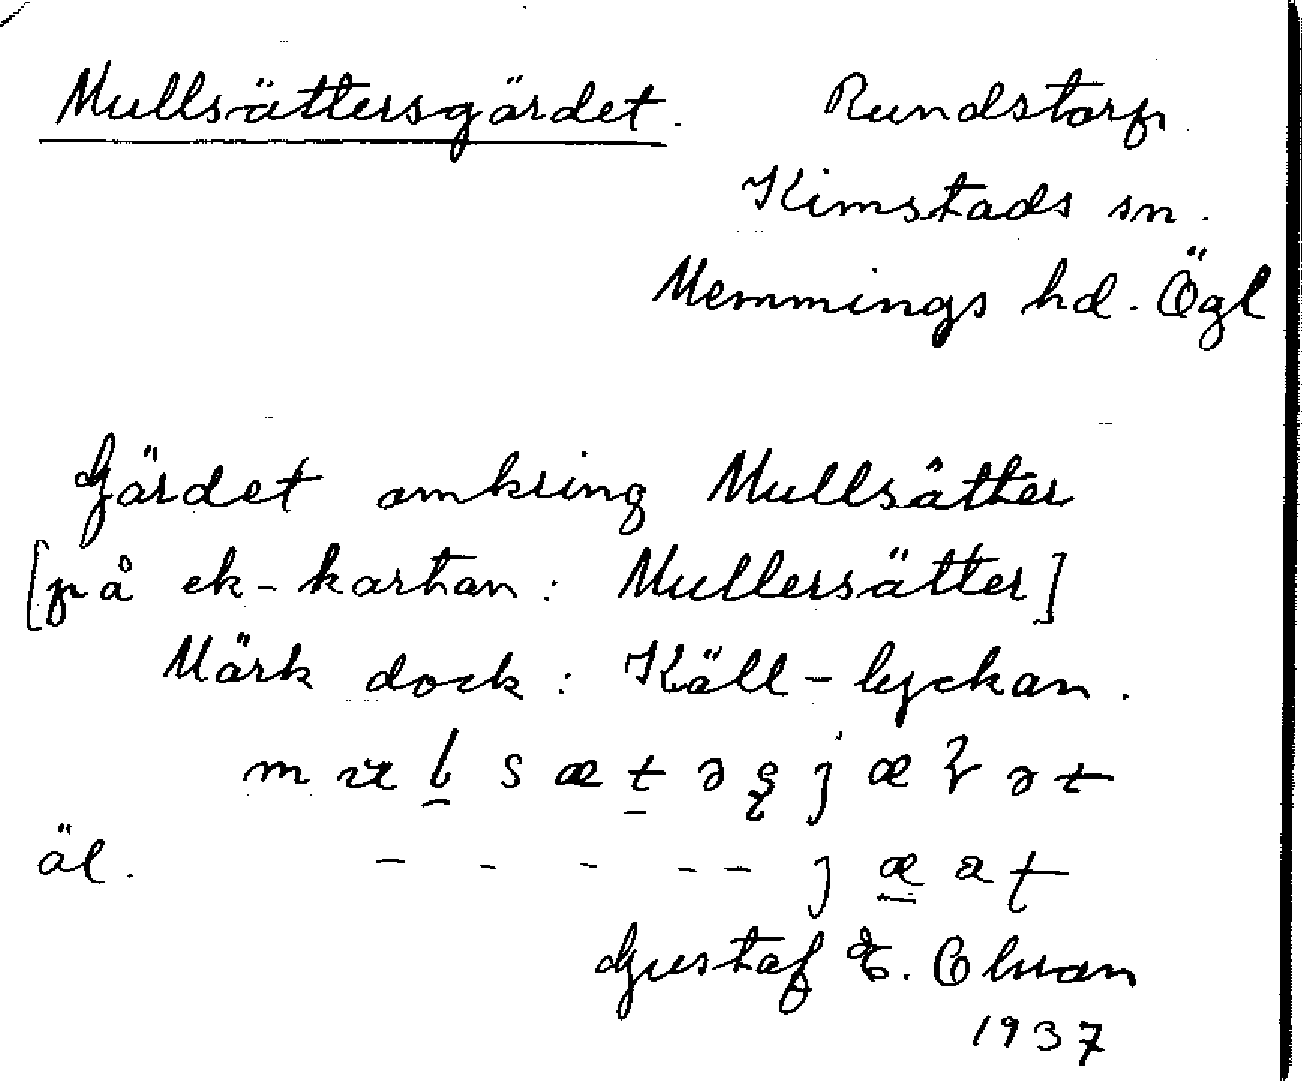 Mullsättersgärdet. Rundstorp
Kimstads sn.
Memmings hd. Ögl
Gärdet omkring Mullsätter
[på ek-kartan: Mullersätter]
Märk dock: Käll-lyckan.
äl.
Gustaf E.
1937